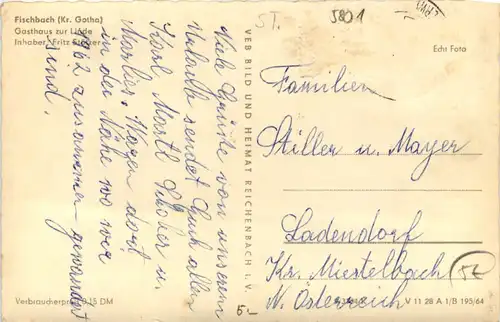 Fischbach (Kr. Gotha)
Gasthaus zur Linde
Inhaber: Fritz
Viele Grüße von unserem
Urlaub sendet Euch allen
Karl Martl u.
Marlies. Wagen dort
in der Nähe wo wir
1962 zusammen gewandert
sind.
VEB BILD UND HEIMAT REICHENBACH i. V.
ST.
5801
Echt Foto
Familien
Stiller u. Mayer
Ladendorf
Kr. Miestelbach
N. Österreich
52
Verbraucherpreis 0,15 DM
5.-
V 11 28 A 1/B 195/64